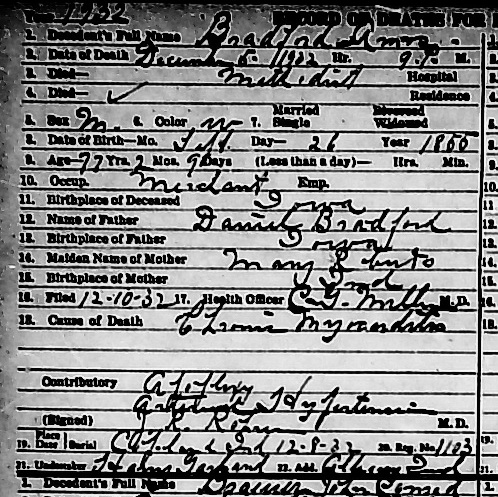 Year 1932 RECORD OF DEATHS FOR
1. Decedent's Full Name Bradford Amos
2. Date of Death December 5 1932 Hr. 9 P. M.
3. Died— Methodist Hospital
4. Died— ✓ Residence
5. Sex M. 6. Color W 7. Married Single Divorced Widowed
8. Date of Birth—Mo. Sept. Day— 26 Year 1855
9. Age 77 Yrs. 2 Mos. 9 Days (Less than a day)— Hrs. Min.
10. Occup. Merchant Emp.
11. Birthplace of Deceased Iowa
12. Name of Father Daniel Bradford
13. Birthplace of Father Iowa
14. Maiden Name of Mother Mary
15. Birthplace of Mother Ind
16. Filed 12-10-32 17. Health Officer C. G. M. D.
18. Cause of Death Chronic Myocarditis
Contributory
Hypertension
(Signed) M. D.
19. Place Date Burial Ind 12-8-32 20. Reg. No. 1103
21. Undertaker 22. Add. Ind
1. Decedent's Full Name John Conrad